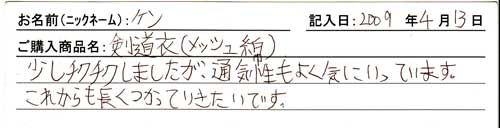 お名前(ニックネーム):ケン 記入日:2009 年 4 月 13 日
ご購入商品名:剣道衣(メッシュ紺)
少しチクチクしましたが、通気性もよく気にいっています。
これからも長くつかっていきたいです。